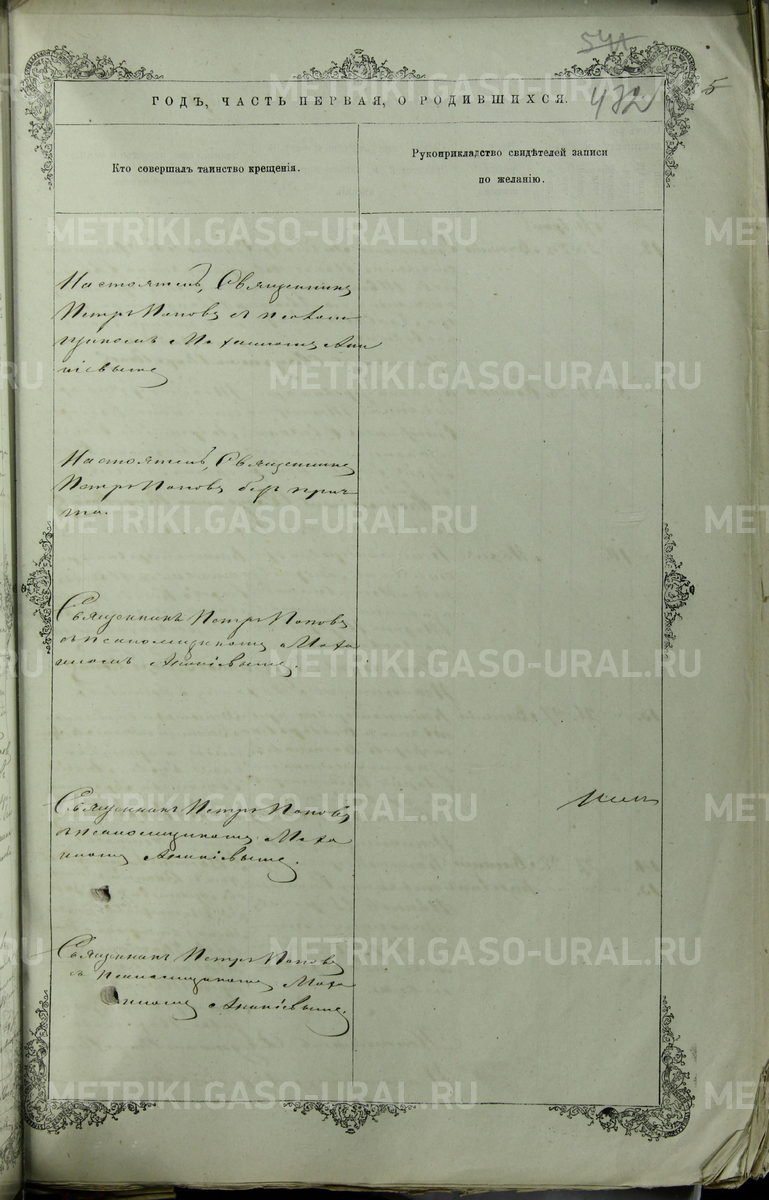 541
432
5
ГОДЪ, ЧАСТЬ ПЕРВАЯ, О РОДИВШИХСЯ.
Кто совершалъ таинство крещенія.
Рукоприкладство свидѣтелей записи
по желанію.
Настоятель, Священникъ
Петръ Поповъ съ псалом
щикомъ Ана
ніевымъ
Настоятель, Священникъ
Петръ Поповъ безъ прич-
та.
Священникъ Петръ Поповъ
съ псаломщикомъ
Ананіевымъ.
Священникъ Петръ Поповъ
съ псаломщикомъ
Ананіевымъ.
Священникъ Петръ Поповъ
съ псаломщикомъ
Ананіевымъ.
METRIKI.GASO-URAL.RU